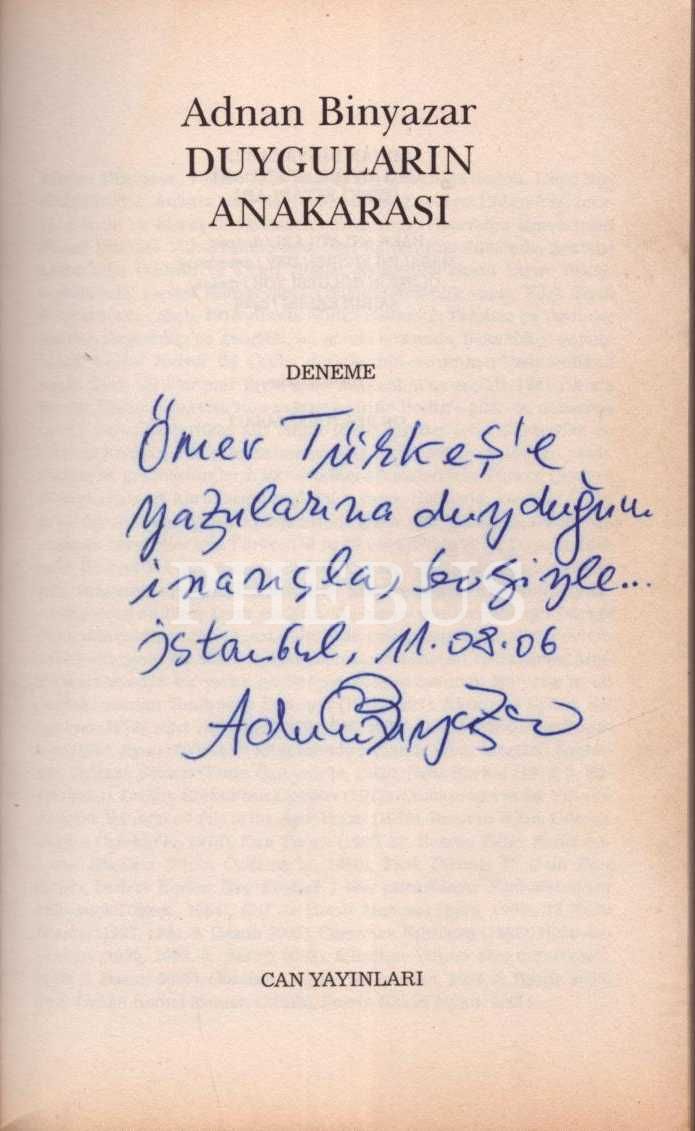 Adnan Binyazar
DUYGULARIN
ANAKARASI
DENEME
Ömer Türkeş'e
yazılarına duyduğum
inançla, sevgiyle...
PHEBUS
İstanbul, 11.08.06
Adnan Binyazar
CAN YAYINLARI